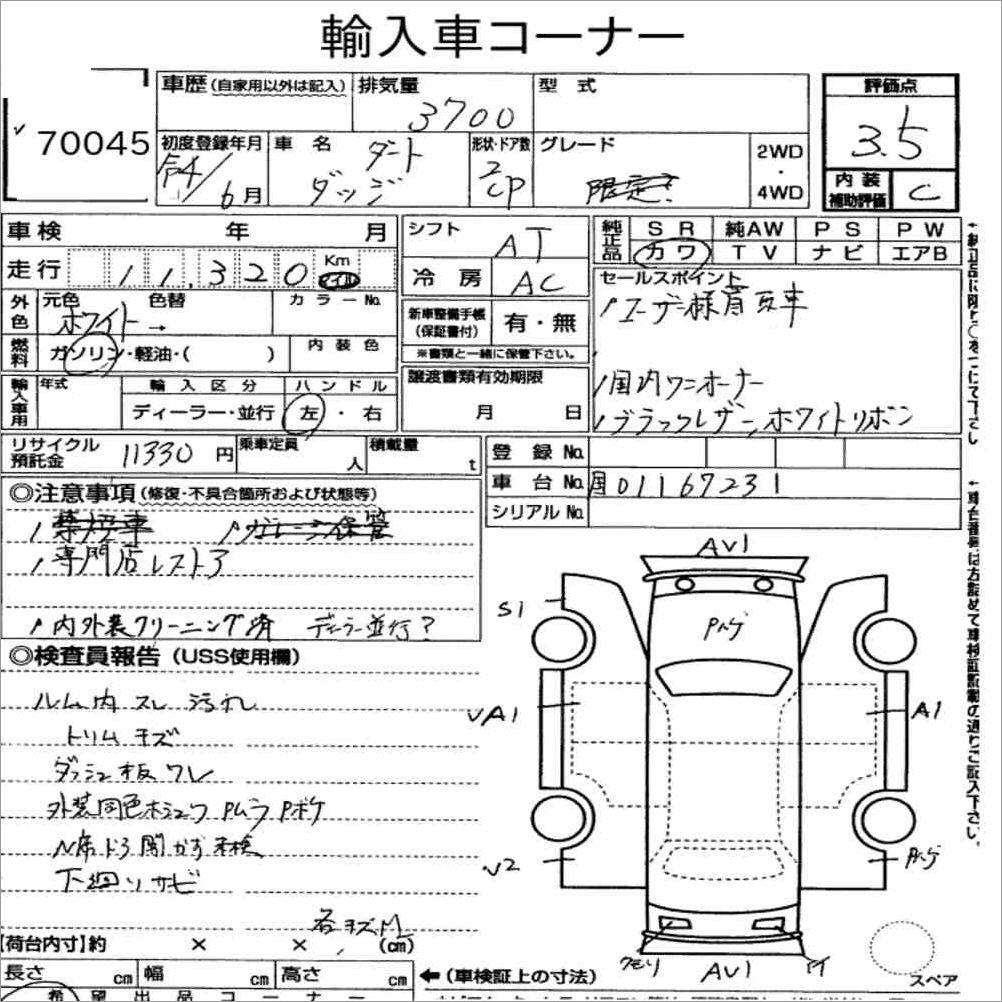 輸入車コーナー
70045
車歴(自家用以外は記入) 排気量 3700 型式
評価点 3.5
初度登録年月 6月 車名 ダッジ ダート
形状・ドア数 2 CP グレード 限定 2WD・4WD
内装補助評価 C
車検 年 月
走行 11,320 Km マイル
シフト AT
冷房 AC
純正品 SR 純AW PS PW
カワ TV ナビ エアB
←純正品に限り○をつけて下さい
外色 元色 ホワイト→ 色替 カラーNo.
燃料 ガソリン・軽油・( ) 内装色
新車整備手帳(保証書付) 有・無
※書類と一緒に保管下さい。
セールスポイント
ユーザー様買取車
国内ワンオーナー
ブラックレザー、ホワイトリボン
輸入車用 年式 輸入区分 ディーラー・並行 ハンドル 左・右
譲渡書類有効期限
月 日
リサイクル預託金 11330円 乗車定員 人 積載量 t
登録No.
車台No. 国01167231
シリアルNo.
←車台番号は左詰めて車検証記載の通りご記入下さい。
◎注意事項(修復・不具合箇所および状態等)
禁煙車 ガレージ保管
専門店レストア
内外装クリーニング済 ディーラー並行?
◎検査員報告(USS使用欄)
ルーム内 スレ 汚れ
トリム キズ
ダッシュ板 ワレ
外装同色ホシュウ Pムラ Pボケ
N席ドア開かず 車検
下廻りサビ
各キズM
AV1
S1
Pハゲ
VA1
A1
V2
Pハゲ
クモリ
AV1
スペア
【荷台内寸】約 × × (cm)
長さ cm 幅 cm 高さ cm
←(車検証上の寸法)
希望出品コーナー